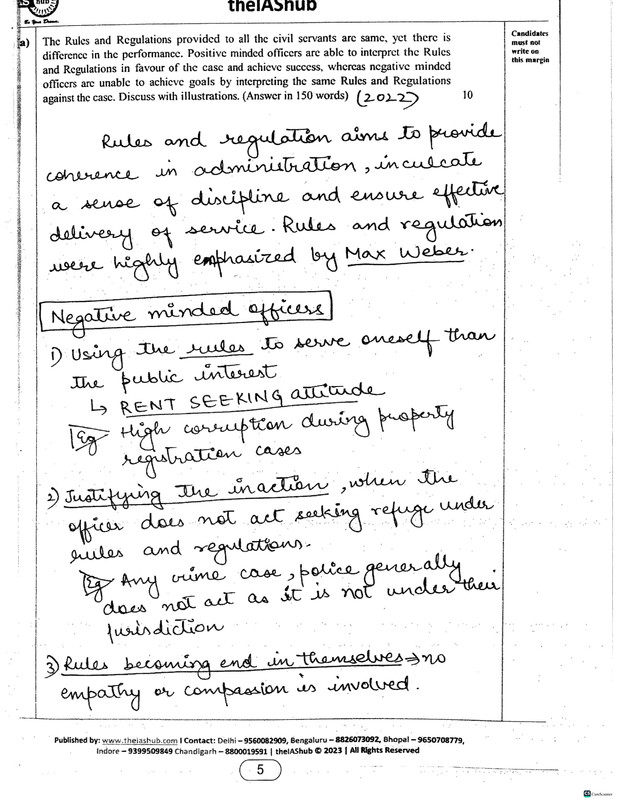 hub
theIAShub
Be Your Dream.
a) The Rules and Regulations provided to all the civil servants are same, yet there is
difference in the performance. Positive minded officers are able to interpret the Rules
and Regulations in favour of the case and achieve success, whereas negative minded
officers are unable to achieve goals by interpreting the same Rules and Regulations
against the case. Discuss with illustrations. (Answer in 150 words) (2022) 10
Candidates
must not
write on
this margin
Rules and regulation aims to provide
coherence in administration, inculcate
a sense of discipline and ensure effective
delivery of service. Rules and regulation
were highly emphasized by Max Weber.
Negative minded officers
1) Using the rules to serve oneself than
the public interest
↳ RENT SEEKING attitude
Eg High corruption during property
registration cases
2) Justifying the inaction, when the
officer does not act seeking refuge under
rules and regulations.
Eg Any crime case, police generally
does not act as it is not under their
jurisdiction
3) Rules becoming end in themselves → no
empathy or compassion is involved.
Published by: www.theiashub.com I Contact: Delhi – 9560082909, Bengaluru – 8826073092, Bhopal – 9650708779,
Indore – 9399509849 Chandigarh – 8800019591 | theIAShub © 2023 | All Rights Reserved
5
CamScanner